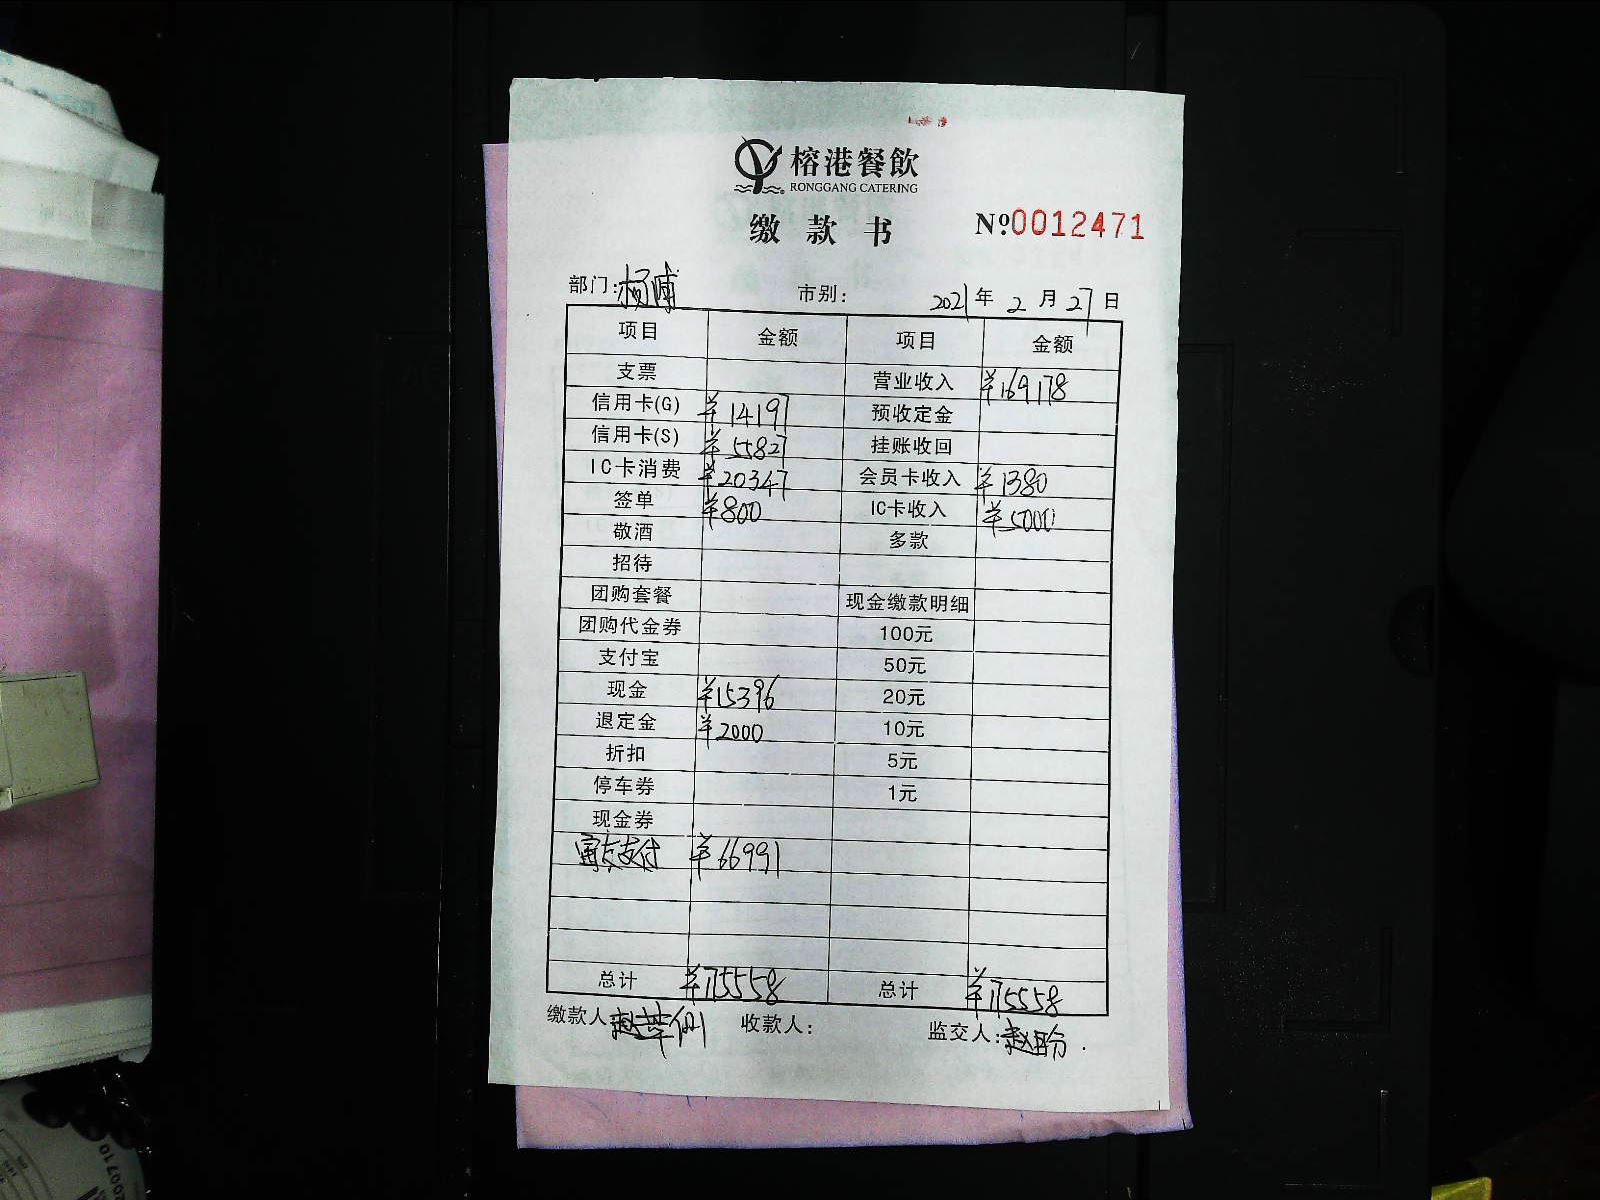 榕港餐飲
RONGGANG CATERING
缴款书 №0012471
部门:杨浦 市别: 2021年2月27日
项目 金额 项目 金额
支票 营业收入 ¥169178
信用卡(G) ¥14197 预收定金
信用卡(S) ¥55827 挂账收回
IC卡消费 ¥20347 会员卡收入 ¥1380
签单 ¥800 IC卡收入 ¥5000
敬酒 多款
招待
团购套餐 现金缴款明细
团购代金券 100元
支付宝 50元
现金 ¥15396 20元
退定金 ¥2000 10元
折扣 5元
停车券 1元
现金券
支付 ¥66991
总计 ¥175558 总计 ¥175558
缴款人 赵 收款人: 监交人:赵
200710